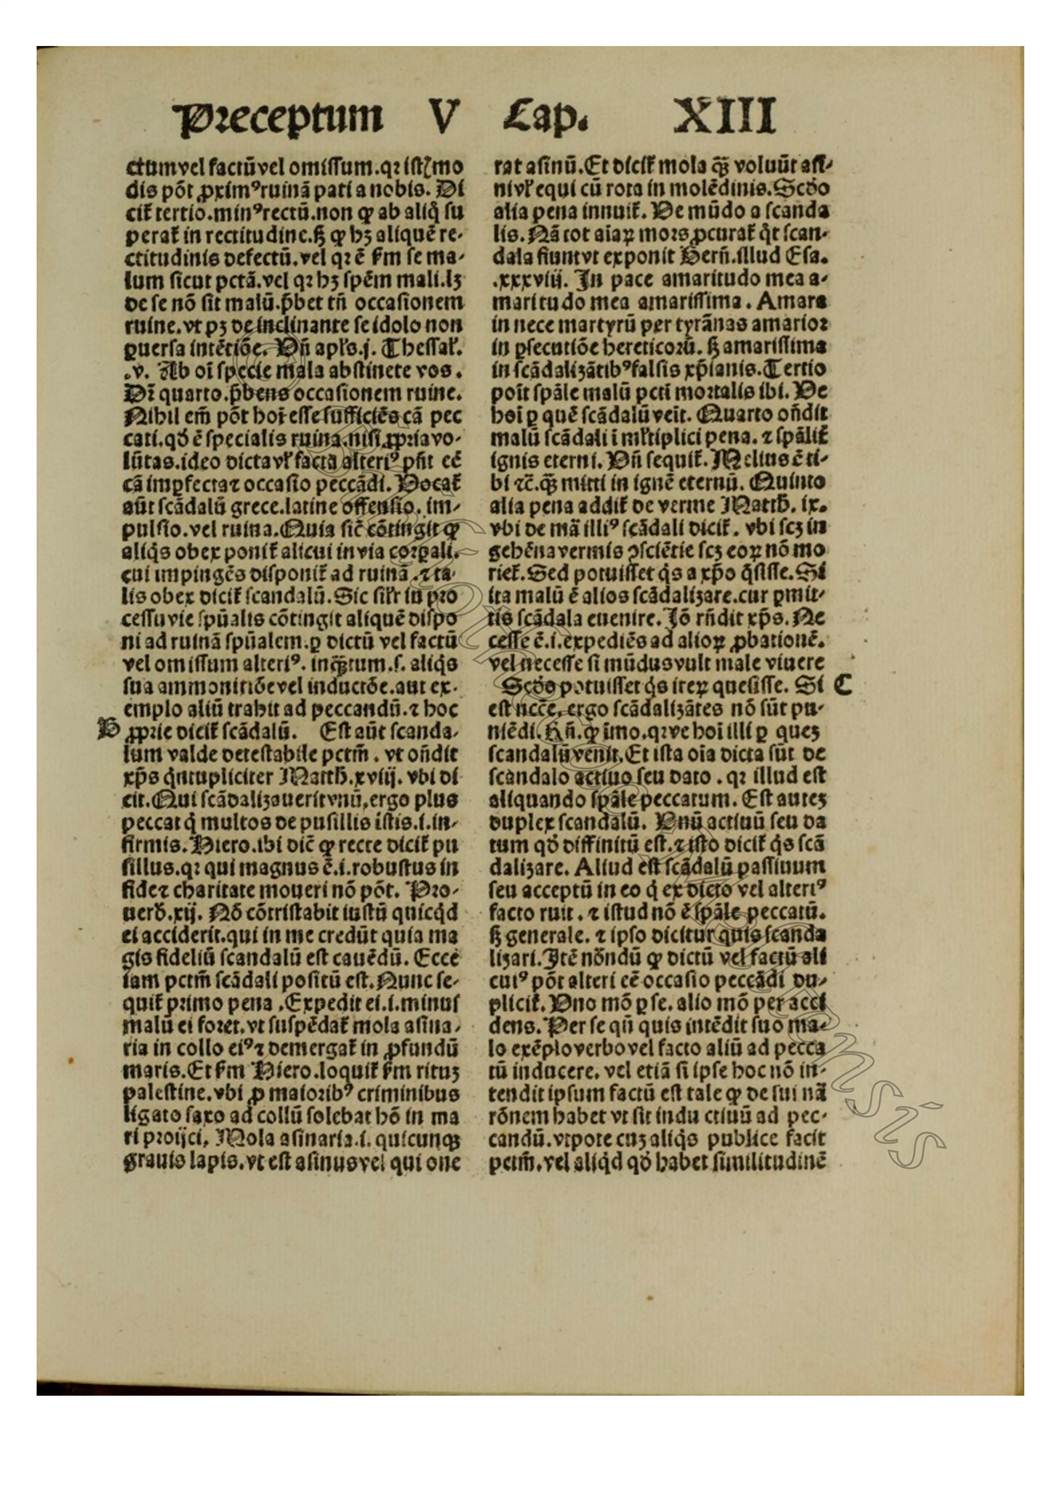 Preceptum V Cap. XIII
ctum vel factū vel omissum. qꝛ istꝭ mo
dis pōt ꝓximꝰ ruinā pati a nobis. Di
cit̄ tertio. minꝰ rectū. non ꝙ ab aliq̄ su
perat̄ in rectitudine. sꝫ ꝙ hꝫ aliquē re⸗
ctitudinis defectū. vel qꝛ ē ẜm se ma⸗
lum sicut pctā. vel qꝛ hꝫ spēm mali. lꝫ
de se nō sit malū. p̄bet tn̄ occasionem
ruine. vt pꝫ de inclinante se idolo non
ꝑuersa intētiōe. Vn̄ apl's. j. Thessal'.
.v. Ab oī specie mala abstinete vos.
Dr̄ quarto. p̄bens occasionem ruine.
Nihil em̄ pōt hoī esse sufficiēs cā pec
cati. qd̓ ē specialis ruina. nisi ꝓpria vo⸗
lūtas. ideo dicta vl' facta alteriꝰ pn̄t eē
cā imꝑfecta ⁊ occasio peccādi. Vocat̄
aūt scādalū grece. latine offensio. im⸗
pulsio. vel ruina. Quia sic̄ cōtingit ꝙ
aliq̄s obex ponit̄ alicui in via corꝑali.
cui impingēs disponit̄ ad ruinā. ⁊ ta⸗
lis obex dicit̄ scandalū. Sic sil'r in pro
cessu vie spūalis cōtingit aliquē dispo
ni ad ruinā spūalem. ꝑ dictū vel factū
vel omissum alteriꝰ. inqꝫtum. s. aliq̄s
sua ammonitiōe vel inductōe. aut ex⸗
emplo aliū trahit ad peccandū. ⁊ hoc
B ꝓprie dicit̄ scādalū. Est aūt scanda⸗
lum valde detestabile pctm̄. vt on̄dit
xp̄s q̄ntupliciter Matth̄. xviij. vbi di
cit. Qui scādalizauerit vnū, ergo plus
peccat q̄ multos de pusillis istis. i. in⸗
firmis. Hiero. ibi dic̄ ꝙ recte dicit̄ pu
sillus. qꝛ qui magnus ē. i. robustus in
fide ⁊ charitate moueri nō pōt. Pro⸗
uerb̄. xij. Nō cōtristabit iustū quicq̄d
ei acciderit. qui in me credūt quia ma
gis fideliū scandalū est cauēdū. Ecce
iam pctm̄ scādali positū est. Nunc se⸗
quit̄ primo pena. Expedit ei. i. minus
malū ei foret. vt suspēdat̄ mola asina⸗
ria in collo eiꝰ ⁊ demergat̄ in ꝓfundū
maris. Et ẜm Hiero. loquit̄ ẜm rituꝫ
palestine. vbi ꝓ maioribꝰ criminibus
ligato saxo ad collū solebat hō in ma
ri proijci, Mola asinaria. i. quicunqꝫ
grauis lapis. vt est asinus vel qui one
rat asinū. Et dicit̄ mola qꝫ̄ voluūt asi⸗
ni vl' equi cū rota in molēdinis. Scd̓o
alia pena innuit̄. Ve mūdo a scanda
lis. Nā tot aīaꝝ mors ꝓcurat̄ q̄t scan⸗
dala fiunt vt exponit Bern̄. illud Esa.
.xxxviij. In pace amaritudo mea a⸗
maritudo mea amarissima. Amara
in nece martyrū per tyrānas amarior
in ꝑsecutiōe hereticorū. sꝫ amarissima
in scādalizātibꝰ falsis xp̄ianis. Tertio
poīt spāle malū pcti mortalis ibi. Ve
hoī ꝑ quē scādalū veīt. Quarto on̄dit
malū scādali ī ml'tiplici pena. ⁊ spālit̄
ignis eterni. Vn̄ sequit̄. Melius ē ti⸗
bi ⁊c̄. qꝫ̄ mitti in ignē eternū. Quinto
alia pena addit̄ de verme Matth̄. ix.
vbi de mā illiꝰ scādali dicit̄. vbi scꝫ in
gehēna vermis ↄsciētie scꝫ eoꝝ nō mo
riet̄. Sed potuisset q̄s a xp̄o q̄sisse. Si
ita malū ē alios scādalizare. cur ꝑmit⸗
tis scādala euenire. Iō rn̄dit xp̄s. Ne
cesse ē. i. expediēs ad alioꝝ ꝓbationē.
vel necesse si mūdus vult male viuere
Scd̓o potuisset q̄s iteꝝ quesisse. Si C
est nccē. ergo scādalizātes nō sūt pu⸗
niēdi. Rn̄. ꝙ īmo. qꝛ ve hoī illi ꝑ queꝫ
scandalū venit. Et ista oīa dicta sūt de
scandalo actiuo seu dato. qꝛ illud est
aliquando spāle peccatum. Est auteꝫ
duplex scandalū. Vnū actiuū seu da
tum qd̓ diffinitū est. ⁊ isto dicit̄ q̄s scā
dalizare. Aliud est scādalū passiuum
seu acceptū in eo q̄ ex dicto vel alteriꝰ
facto ruit. ⁊ istud nō ē spāle peccatū.
sꝫ generale. ⁊ ipso dicitur quis scanda
lizari. Itē nōndū ꝙ dictū vel factū ali
cuiꝰ pōt alteri eē occasio peccādi du⸗
plicit̄. Vno mō ꝑ se. alio mō per acci
dens. Per se qn̄ quis intēdit suo ma⸗
lo exēplo verbo vel facto aliū ad pecca
tū inducere. vel etiā si ipse hoc nō in⸗
tendit ipsum factū est tale ꝙ de sui nā
rōnem habet vt sit inductiuū ad pec⸗
candū. vtpote cuꝫ aliq̄s publice facit
pctm̄. vel aliq̄d qd̓ habet similitudinē